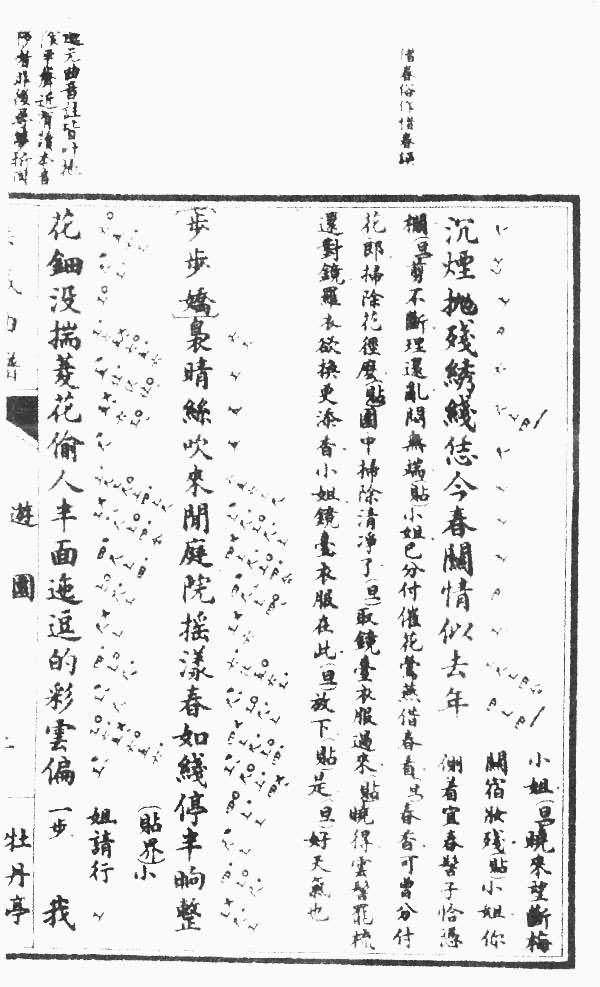 借春俗作惜春誤
沉煙拋殘綉綫恁今春關情似去年
小姐(旦)曉來望斷梅
關宿妝殘(貼)小姐你
側着宜春髻子恰憑
欄(旦)剪不斷理還亂悶無端(貼)小姐已分付催花鶯燕借春看(旦)春香可曾分付
花郎掃除花徑麽(貼)園中掃除清淨了(旦)取鏡臺衣服過來(貼)曉得雲髻罷梳
還對鏡羅衣欲換更添香小姐鏡臺衣服在此(旦)放下(貼)是(旦)好天氣也
〔步步嬌〕裊晴絲吹來閒庭院搖漾春如綫停半晌整
花鈿没揣菱花偷人半面迤逗的彩雲偏
(貼介)小
姐請行
一步
我
遊園
牡丹亭